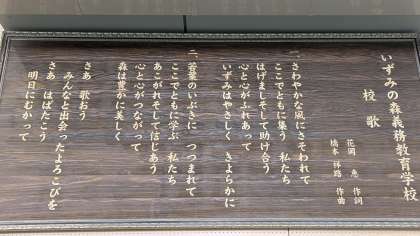 いずみの森義務教育学校
校歌
花岡 恵 作詞
橋本 祥路 作曲
一 さわやかな風に さそわれて
ここでともに集う 私たち
はげましそして助け合う
心と心がふれあって
いずみはやさしく きよらかに
二 若葉のいぶきに つつまれて
ここでともに学ぶ 私たち
あこがれそして信じあう
心と心がつながって
森は豊かに美しく
さあ 歌おう
みんなと出会ったよろこびを
さあ はばたこう
明日にむかって